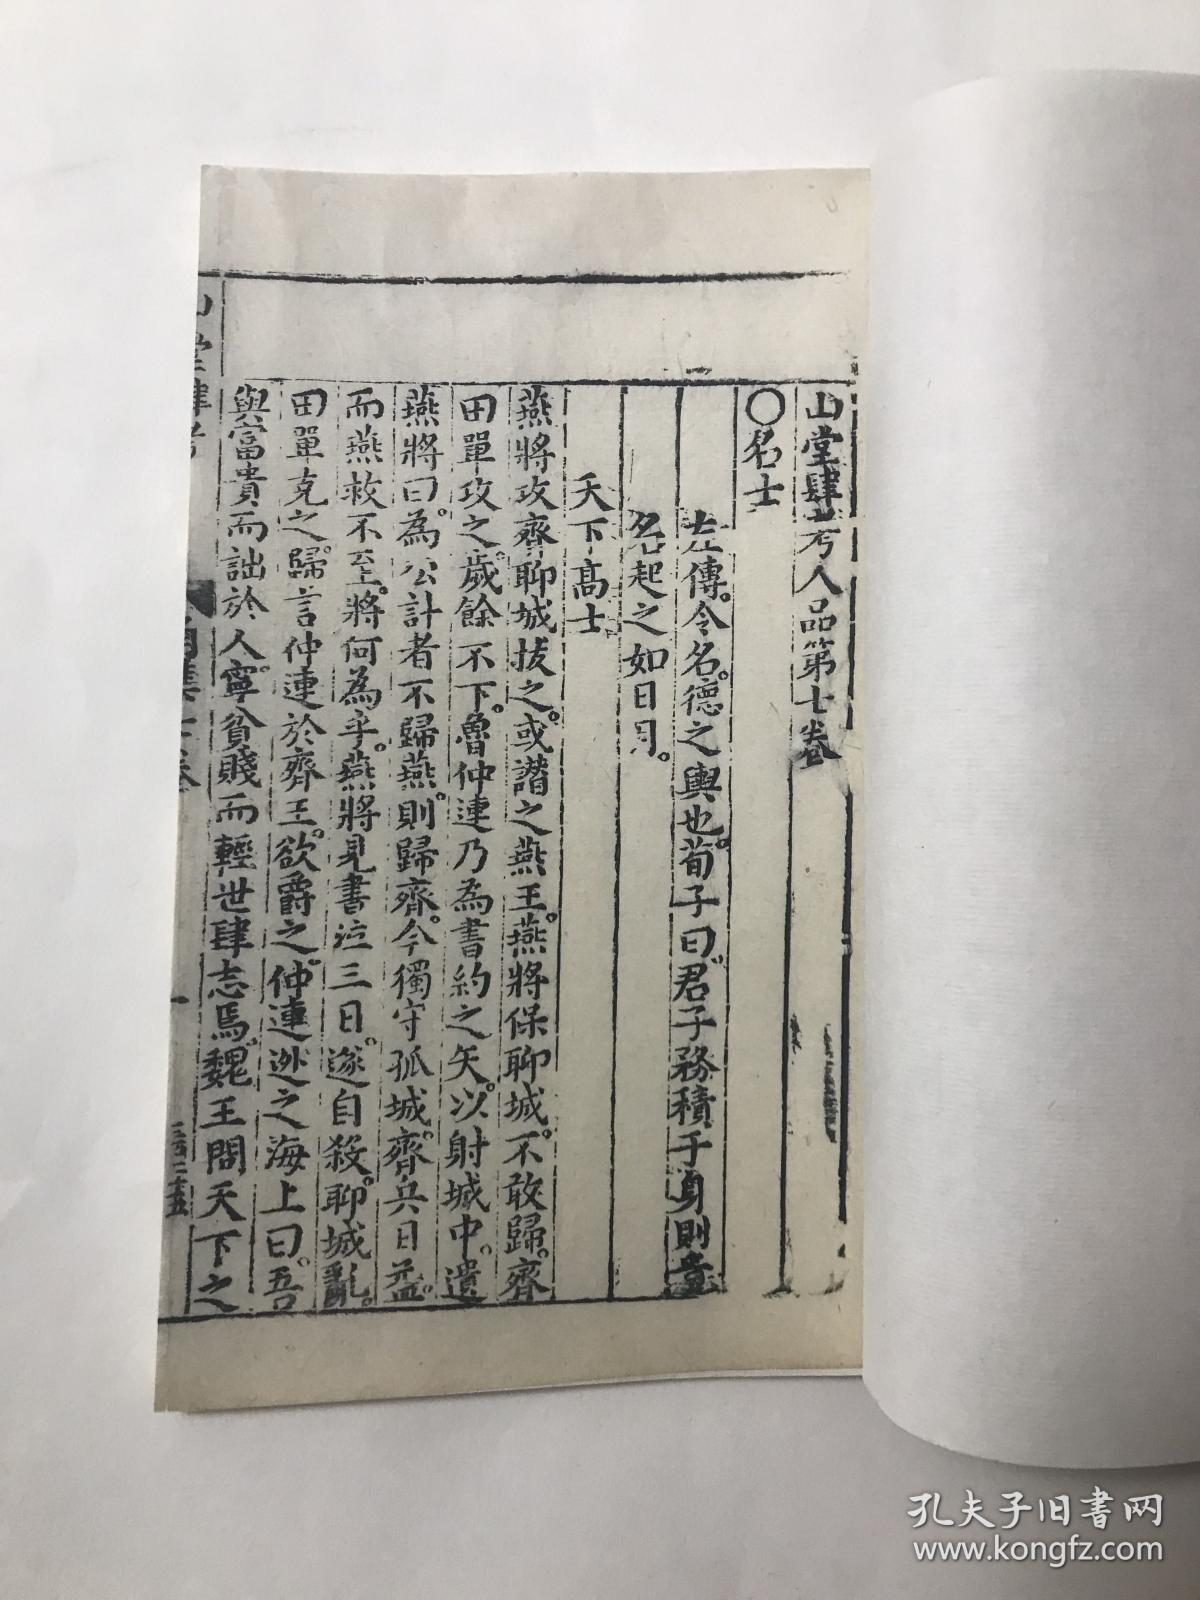 山堂肆考人品第七卷
○名士
左傳令名德之輿也荀子曰君子務積于身則章
名起之如日月
天下高士
燕將攻齊聊城拔之或譖之燕王燕將保聊城不敢歸齊
田單攻之歲餘不下魯仲連乃為書約之矢以射城中遺
燕將曰為公計者不歸燕則歸齊今獨守孤城齊兵日益
而燕救不至將何為乎燕將見書泣三日遂自殺聊城亂
田單克之歸言仲連於齊王欲爵之仲連逃之海上曰吾
與富貴而詘於人寧貧賤而輕世肆志焉魏王問天下之
山堂肆考
孔夫子旧书网
www.kongfz.com